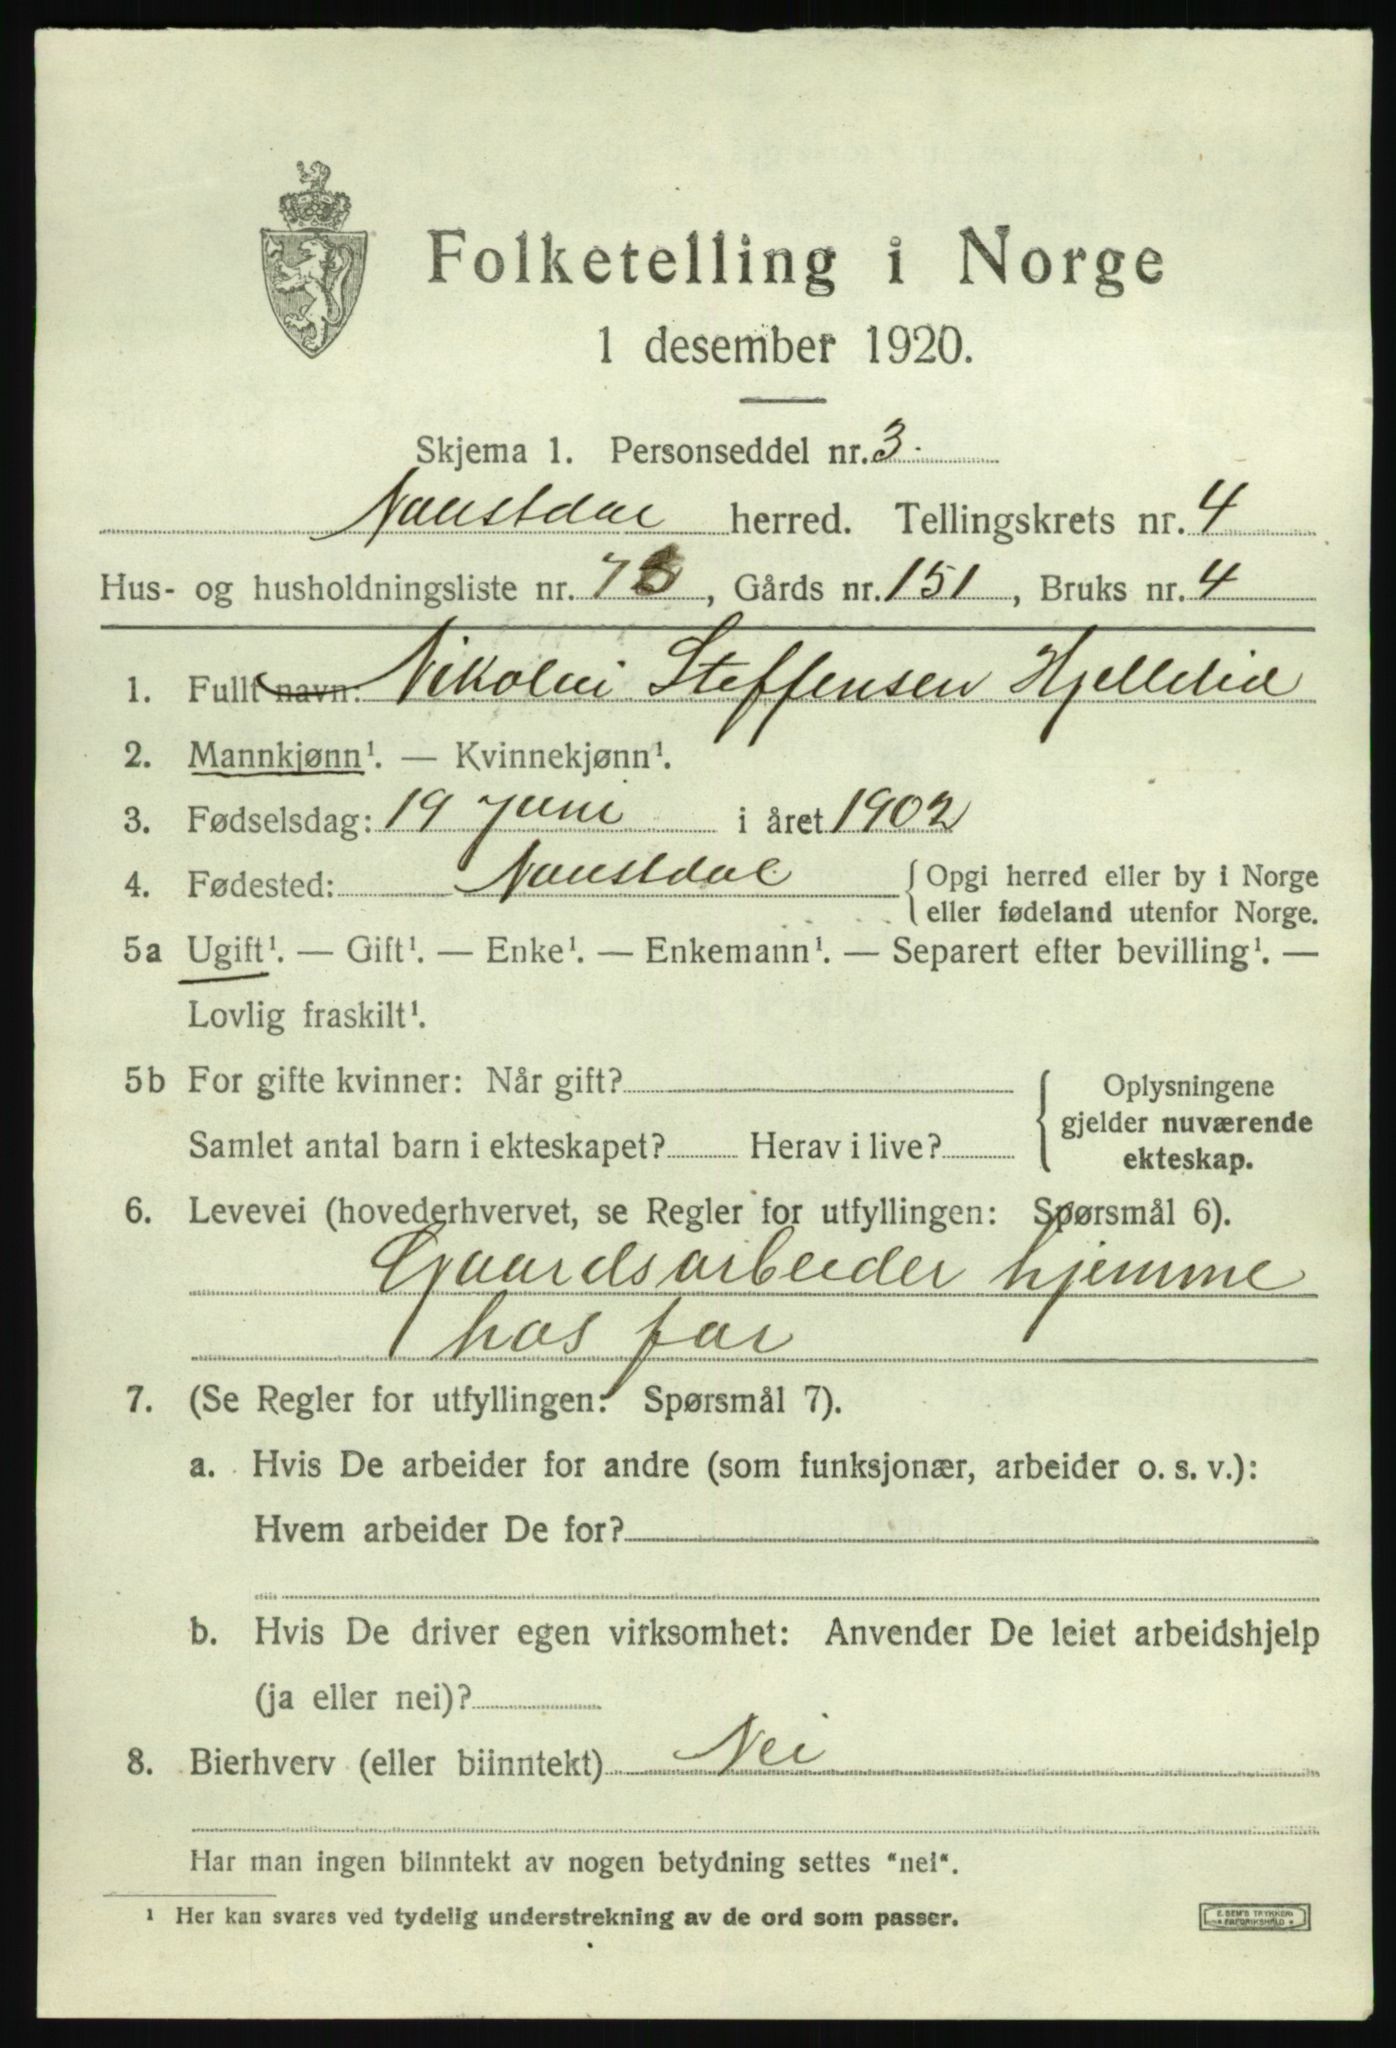 Folketelling i Norge
1 desember 1920.
Skjema 1. Personseddel nr. 3.
Naustdal herred. Tellingskrets nr. 4
Hus- og husholdningsliste nr. 73, Gårds nr. 151, Bruks nr. 4
1. Fullt navn: Nikolai Steffensen Hjellelid
2. Mannkjønn¹. — Kvinnekjønn¹.
3. Fødselsdag: 19 juni i året 1902
4. Fødested: Naustdal { Opgi herred eller by i Norge
eller fødeland utenfor Norge.
5a Ugift¹. — Gift¹. — Enke¹. — Enkemann¹. — Separert efter bevilling¹. —
Lovlig fraskilt¹.
5b For gifte kvinner: Når gift?
Samlet antal barn i ekteskapet? Herav i live?
{ Oplysningene
gjelder nuværende
ekteskap.
6. Levevei (hovederhvervet, se Regler for utfyllingen: Spørsmål 6).
Gaardsarbeider hjemme
hos far
7. (Se Regler for utfyllingen: Spørsmål 7).
a. Hvis De arbeider for andre (som funksjonær, arbeider o. s. v.):
Hvem arbeider De for?
b. Hvis De driver egen virksomhet: Anvender De leiet arbeidshjelp
(ja eller nei)?
8. Bierhverv (eller biinntekt) Nei
Har man ingen biinntekt av nogen betydning settes "nei".
¹ Her kan svares ved tydelig understrekning av de ord som passer.
E. SEM'S TRYKKERI
FREDRIKSHALD